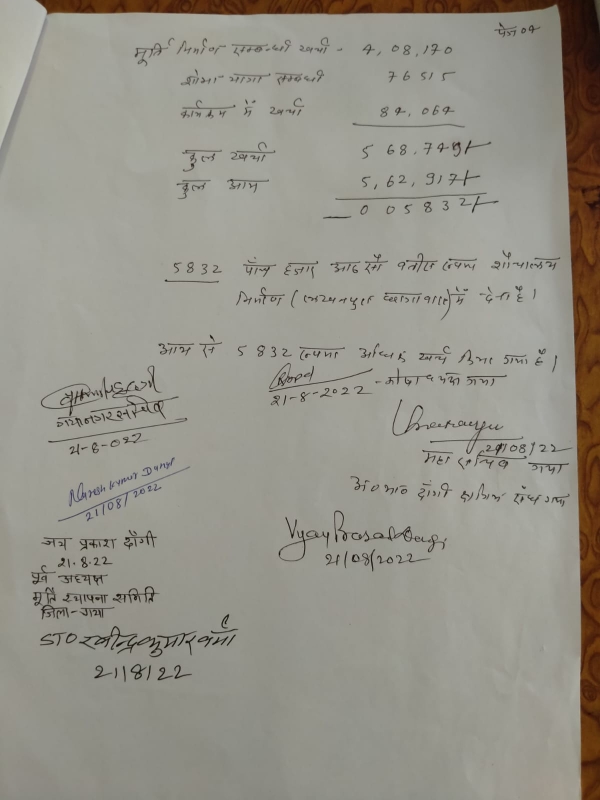 पेज 04
मूर्ति निर्माण सम्बन्धी खर्चा - 4,08,170
शोभा यात्रा सम्बन्धी 76515
कार्यक्रम में खर्चा 84,064
कुल खर्चा 568.749/-
कुल आय 5,62,917/-
005832/-
5832 पाँच हजार आठ सौ बत्तीस रूपया शौचालय
निर्माण में देना है।
आय से 5832 रूपया अधिक खर्च किया गया है।
21-8-2022 - कोषाध्यक्ष गया
गया नगर सचिव
21-8-022
21/08/22
महा सचिव गया
Naresh Kumar Dangi
21/08/2022
अ० भा० दाँगी क्षत्रिय संघ गया
जय प्रकाश दाँगी
21.8.22
पूर्व अध्यक्ष
मूर्ति स्थापना समिति
जिला-गया
Vijay Prasad Dangi
21/08/2022
STO रवीन्द्र कुमार वर्मा
21/8/22